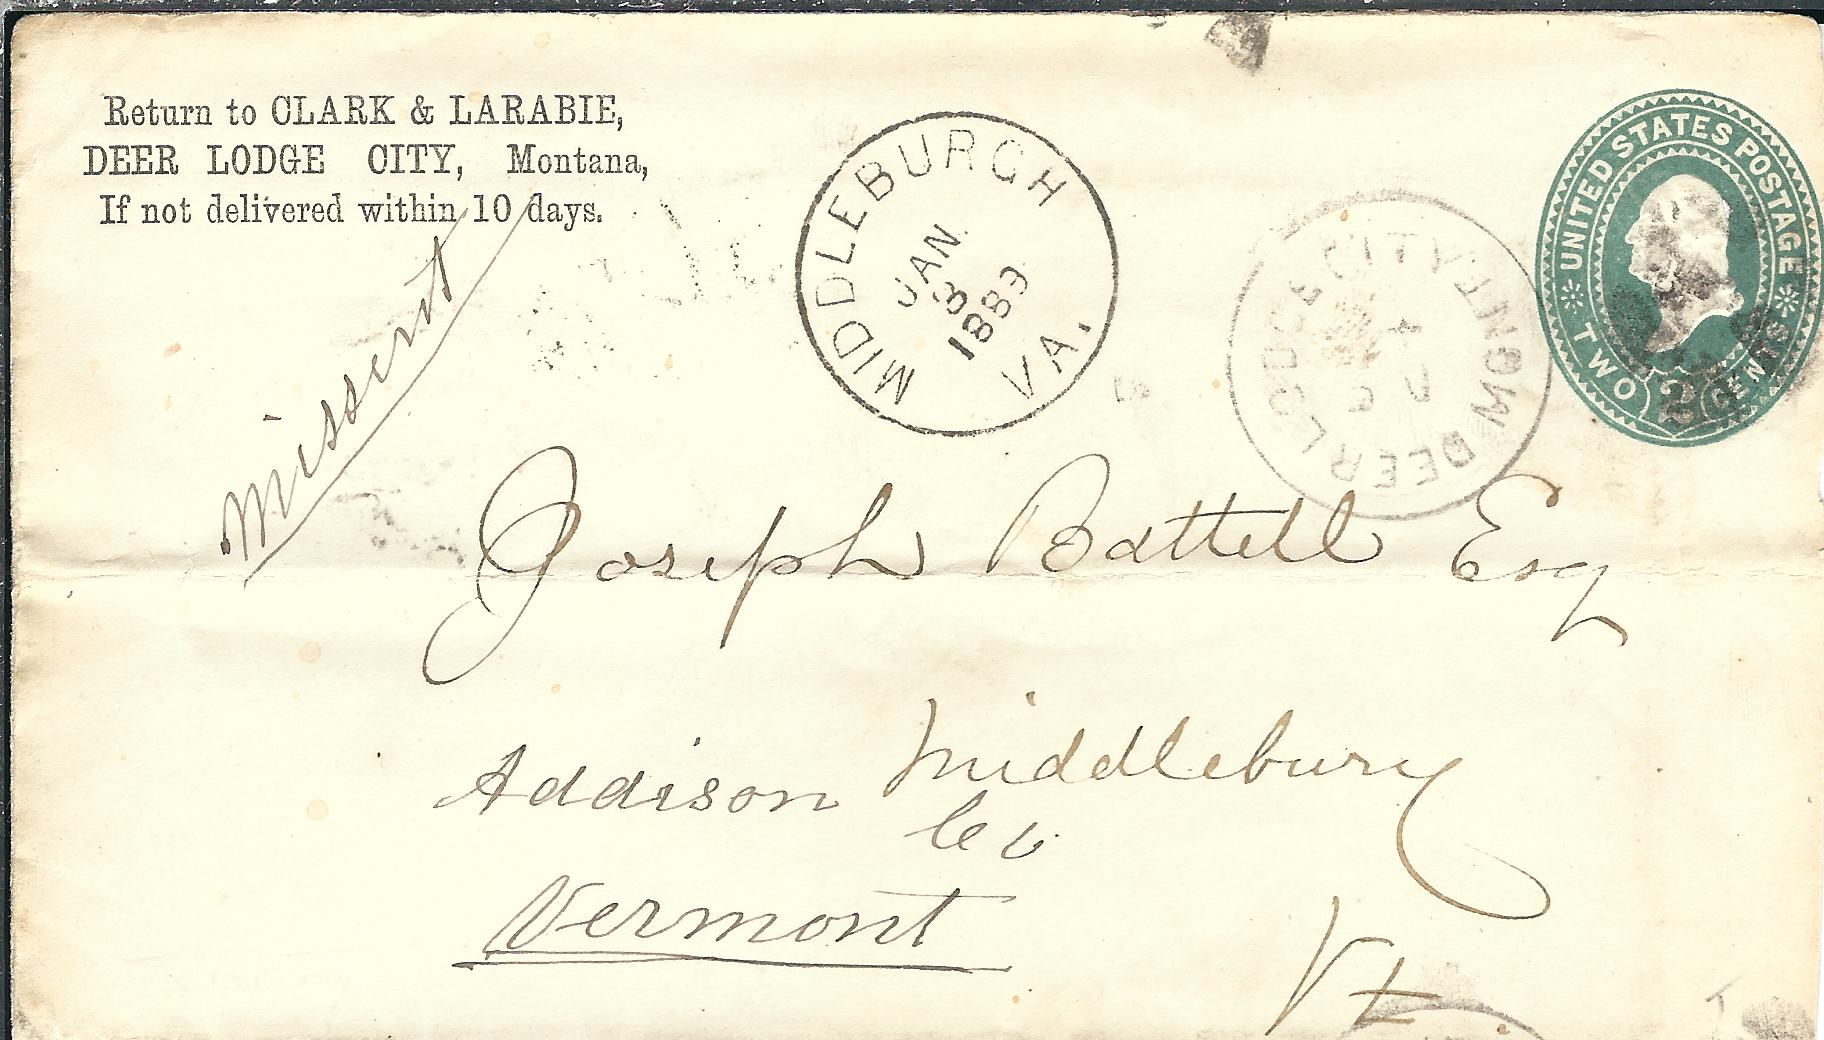 Return to CLARK & LARABIE,
DEER LODGE CITY, Montana,
If not delivered within 10 days.
MIDDLEBURGH
JAN. 3 1889
VA.
DEER LODGE CITY MONT.
UNITED STATES POSTAGE
TWO 2 CENTS
Missent
Joseph Battell Esq
Middlebury
Addison Co
Vermont
Vt.